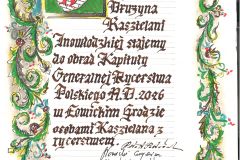 Drużyna
Kasztelani
Inowłodzkiej stajemy
do obrad Kapituły
Generalnej Rycerstwa
Polskiego A.D. 2026
w Łowickim Grodzie
osobami Kasztelana z
rycerstwem